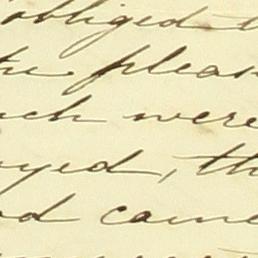 obliged t
the pleas
ch were
yed, th
od came